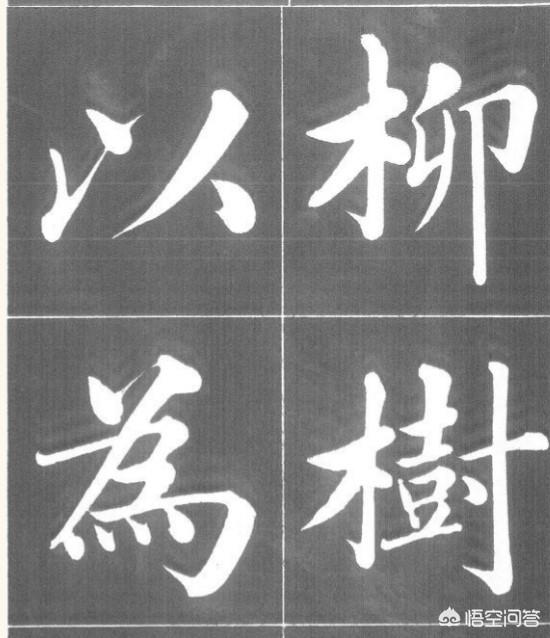 柳樹
以為
悟空问答